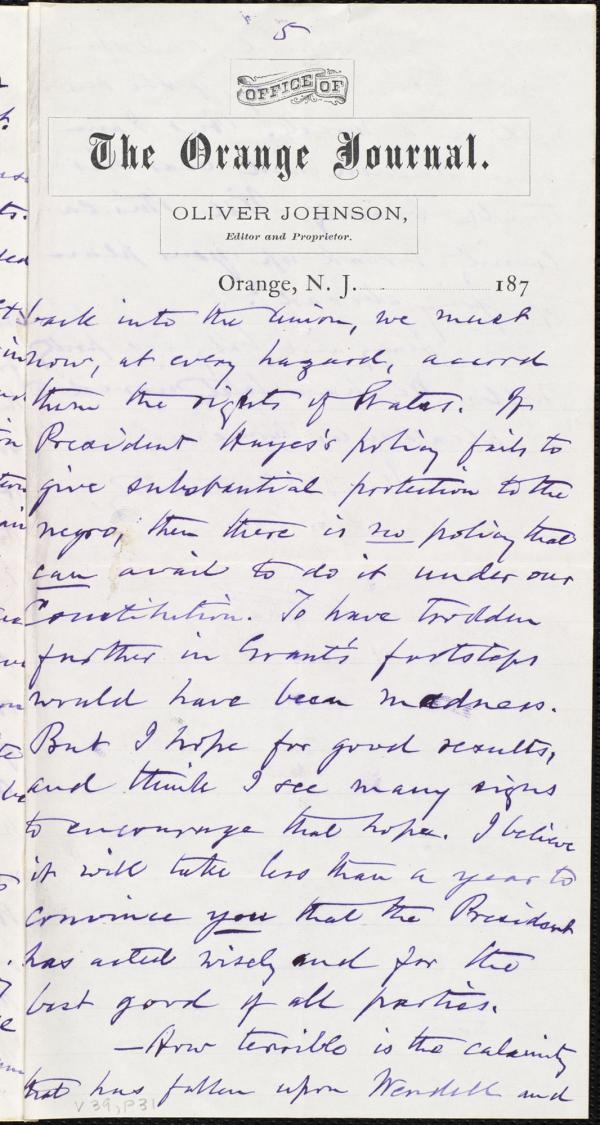 5
OFFICE OF
The Orange Journal.
OLIVER JOHNSON,
Editor and Proprietor.
Orange, N. J. 187
back into the Union, we must
now, at every hazard, accord
them the rights of States. If
President Hayes's policy fails to
give substantial protection to the
negro, then there is no policy that
can avail to do it under our
Constitution. To have trodden
further in Grant's footsteps
would have been madness.
But I hope for good results,
and think I see many signs
to encourage that hope. I believe
it will take less than a year to
convince you that the President
has acted wisely and for the
best good of all parties.
—How terrible is the calamity
that has fallen upon Wendell and
V39, P31